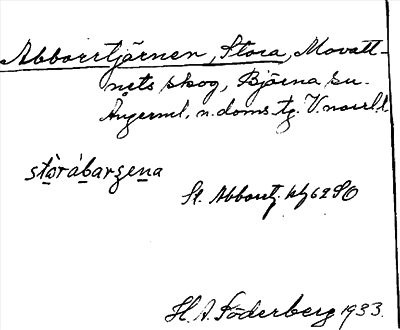 Abborrtjärnen, Stora, Movatt-
nets skog, Björna sn.
Ångerml. n. doms. tg. V. norrl. l
stòrábarʒena
St. Abbortj. kbl 62 SO
H. A. Söderberg 1933.